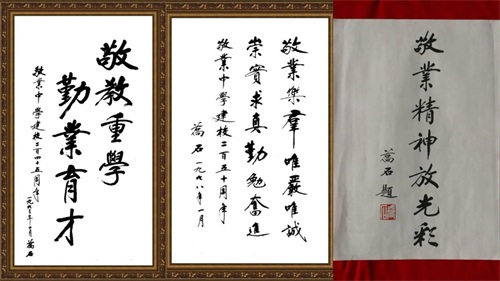 敬教重學
勤業育才
敬業中學建校二百四十五周年
一九九三年 蒿石
敬業樂羣唯嚴唯誠
崇實求真勤勉奮進
敬業中學建校二百五十周年
蒿石 一九九八年一月
敬業精神放光彩
蒿石題